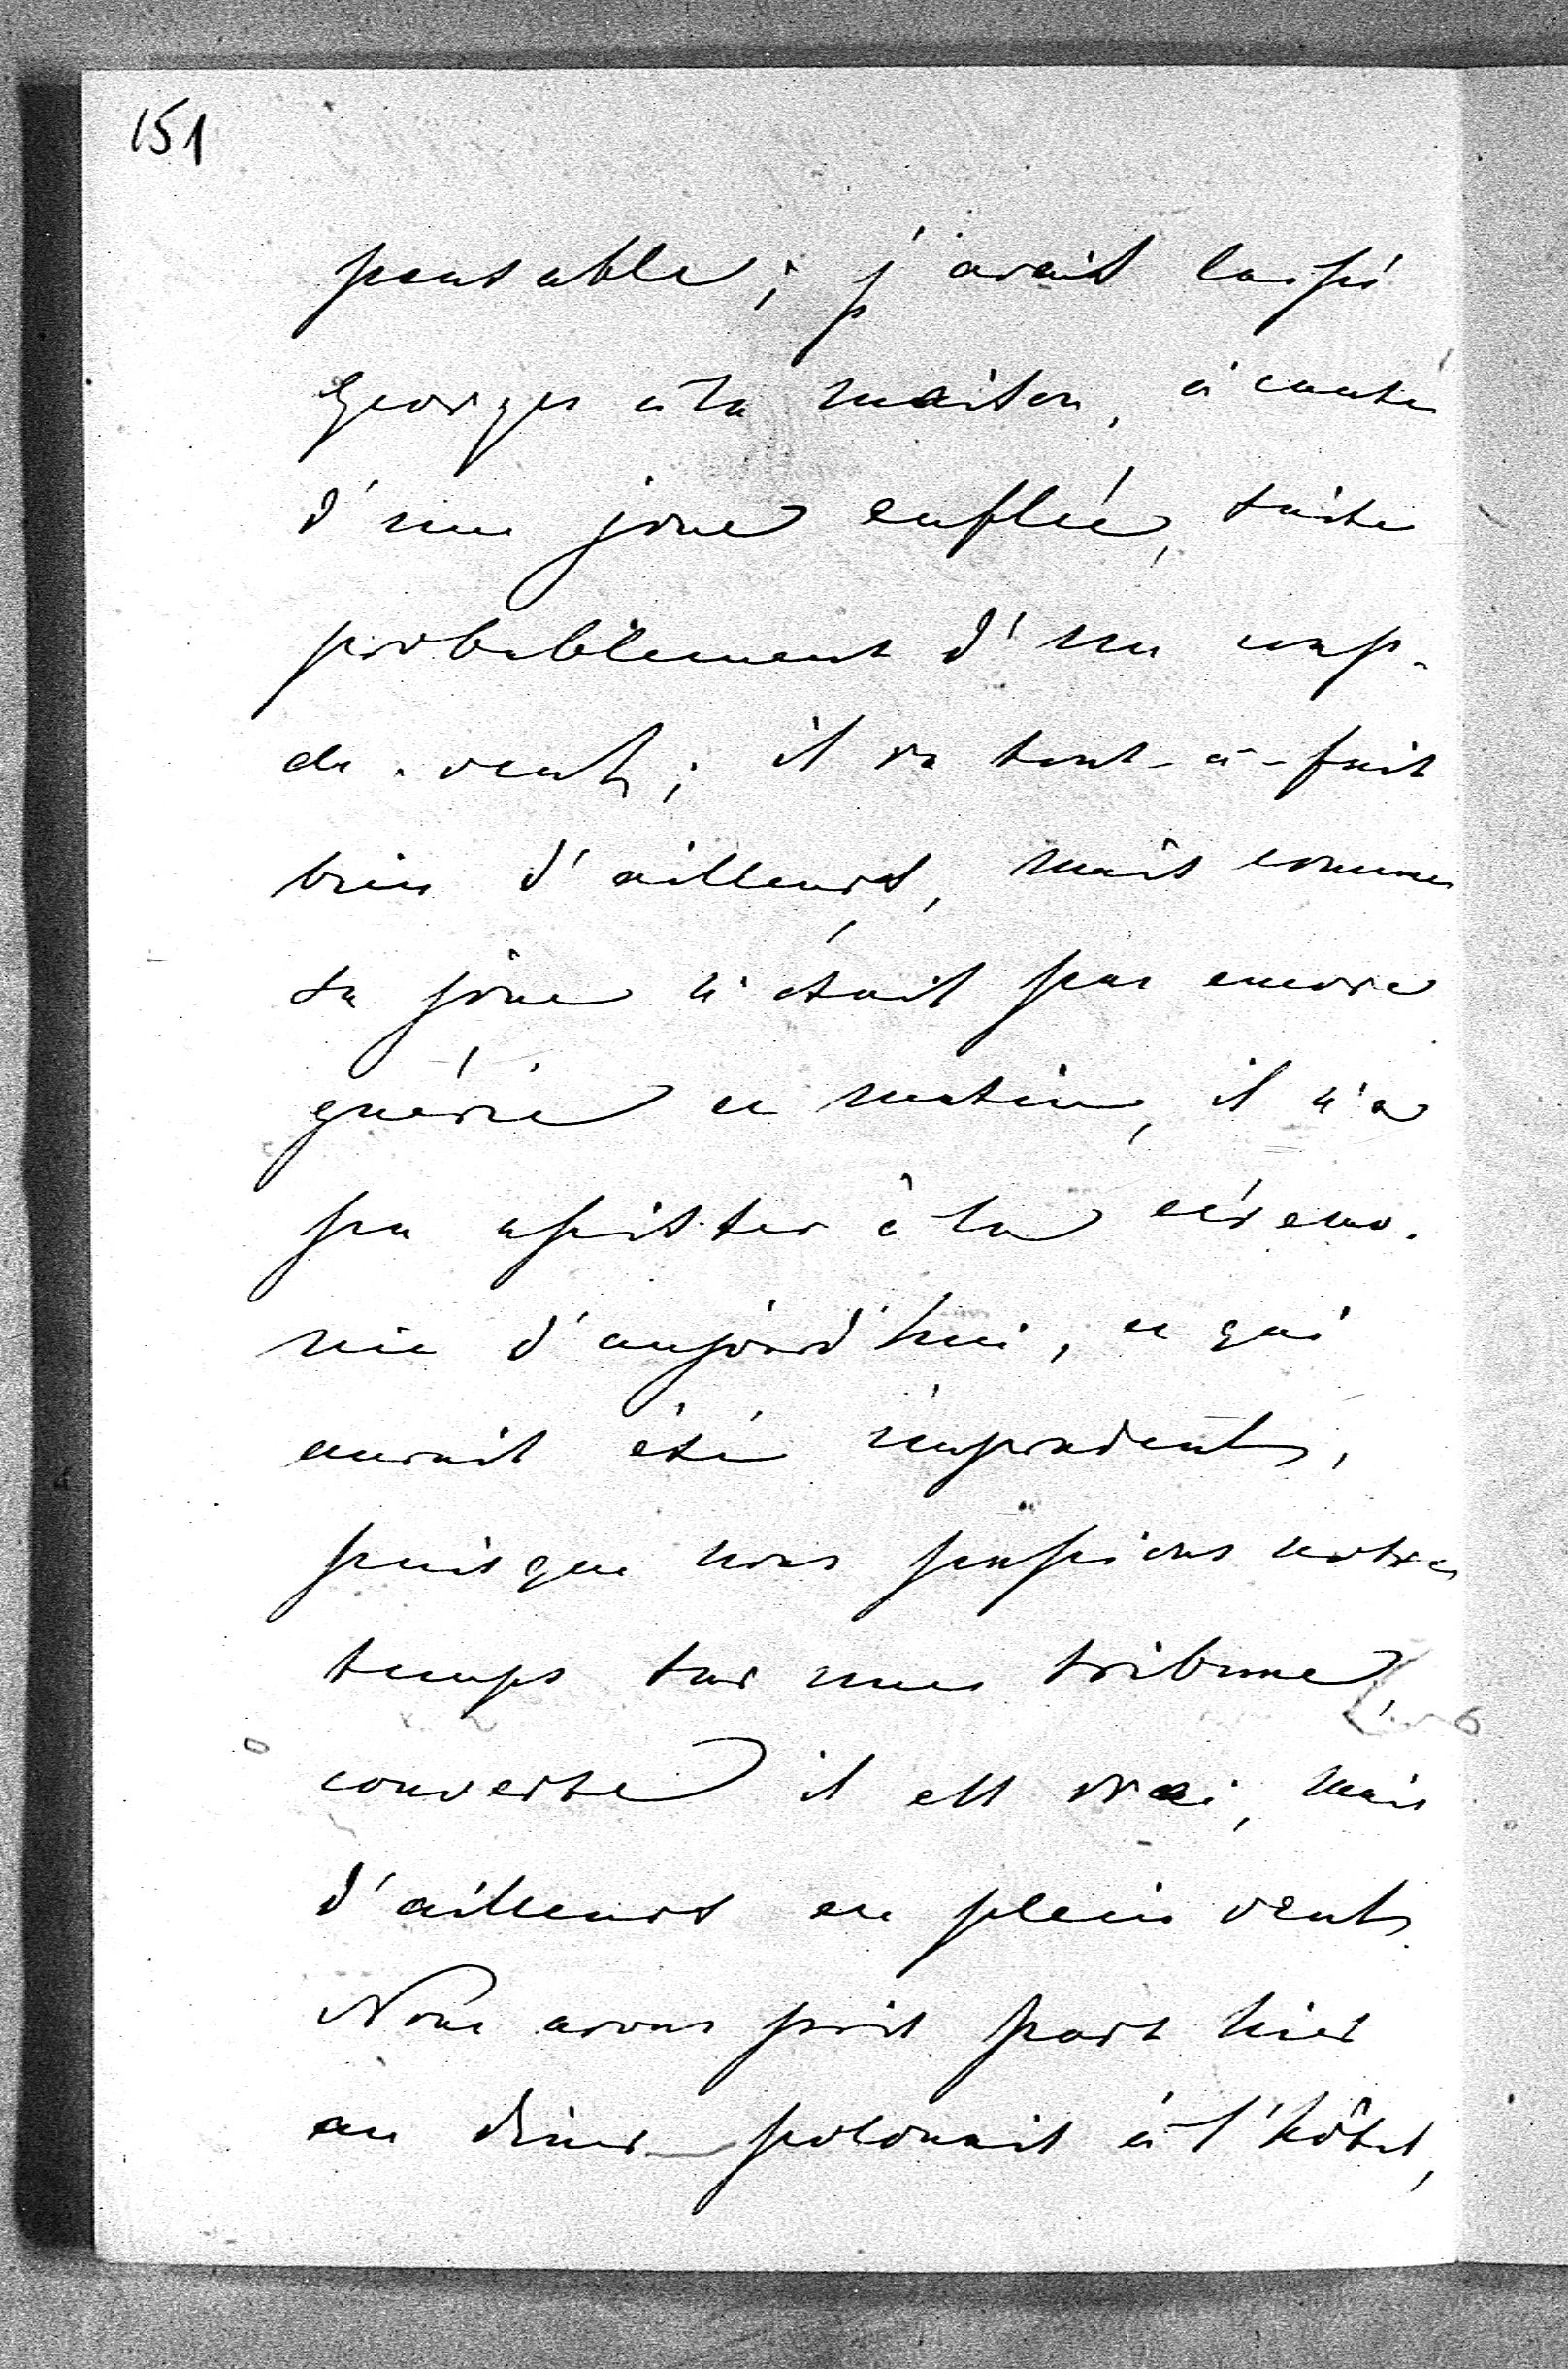 151
pensable; j'avais laissé
Georges à la maison, à cause
d'une joue enflée, suite
probablement d'un coup-
de-vent; il va tout-à-fait
bien d'ailleurs, mais comme
sa joue n'était pas encore
guérie ce matin, il n'a
pu assister à la cérémo-
nie d'aujourd'hui, ce qui
aurait été imprudent,
puisque nous passions notre
temps sur une tribune,
couverte il est vrai, mais
d'ailleurs en plein vent.
Nous avons pris part hier
au diner polonais à l'hôtel,